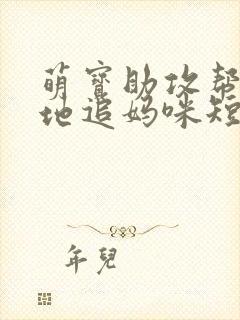 萌寶助攻幫
地追媽咪短
年兒